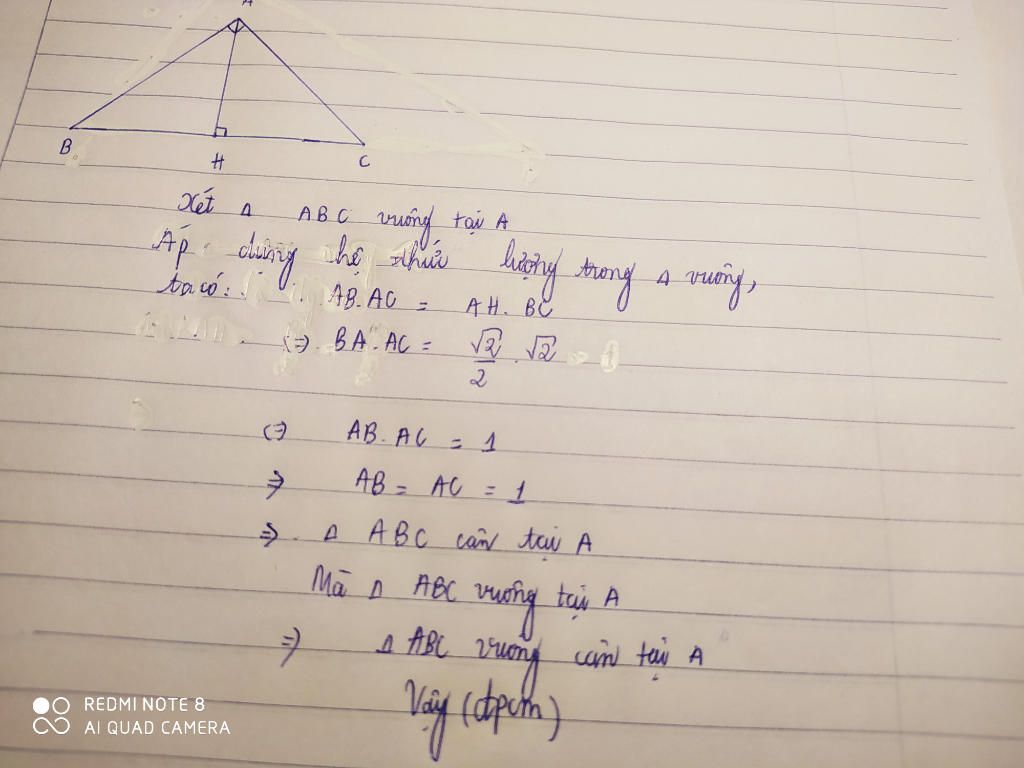 A
B
H
C
Xét Δ ABC vuông tại A
Áp dụng hệ thức lượng trong Δ vuông,
ta có: AB.AC = AH. BC
(=) BA.AC = √2/2 . √2
(=) AB.AC = 1
=) AB = AC = 1
=) Δ ABC cân tại A
Mà Δ ABC vuông tại A
=) Δ ABC vuông cân tại A
Vậy (đpcm)
REDMI NOTE 8
AI QUAD CAMERA